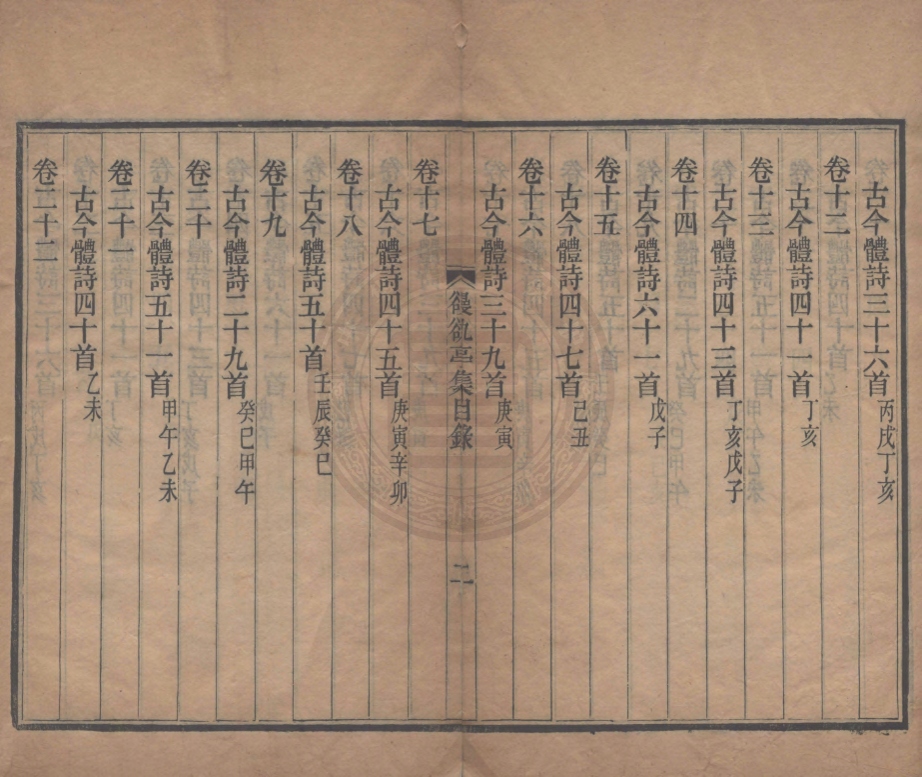 古今體詩三十六首丙戌丁亥
卷十二
古今體詩四十一首丁亥
卷十三
古今體詩四十三首丁亥戊子
卷十四
古今體詩六十一首戊子
卷十五
古今體詩四十七首己丑
卷十六
古今體詩三十九首庚寅
䜱𠋫亭集目錄
二
卷十七
古今體詩四十五首庚寅辛卯
卷十八
古今體詩五十首壬辰癸巳
卷十九
古今體詩二十九首癸巳甲午
卷二十
古今體詩五十一首甲午乙未
卷二十一
古今體詩四十首乙未
卷二十二